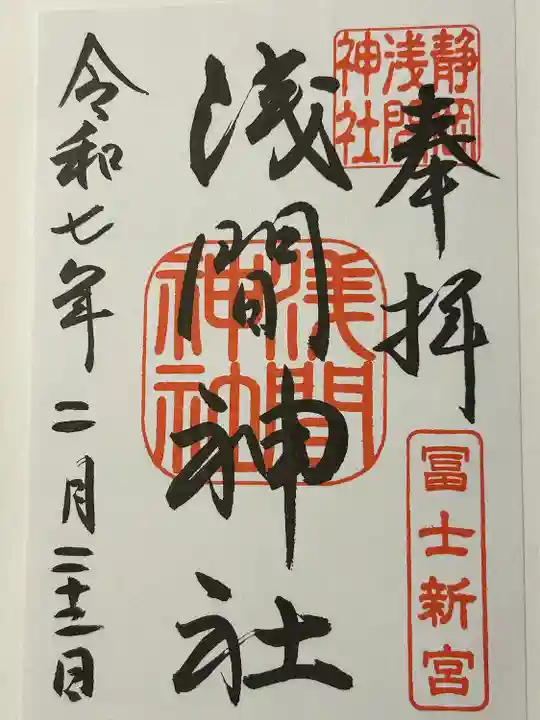 奉拝
静岡
浅間
神社
冨士新宮
浅間神社
浅間
神社
令和七年二月二十二日